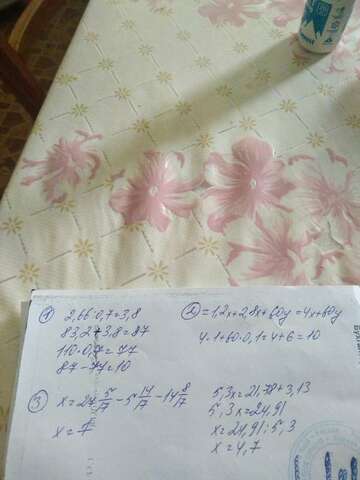 ① 2,66:0,7=3,8
83,2+3,8=87
110·0,7=77
87-77=10
② =1,2x+2,8x+60y=4x+60y
4·1+60·0,1=4+6=10
③ x=27 5/17-5 14/17-14 8/17
x=7
5,3x=21,78+3,13
5,3x=24,91
x=24,91:5,3
x=4,7